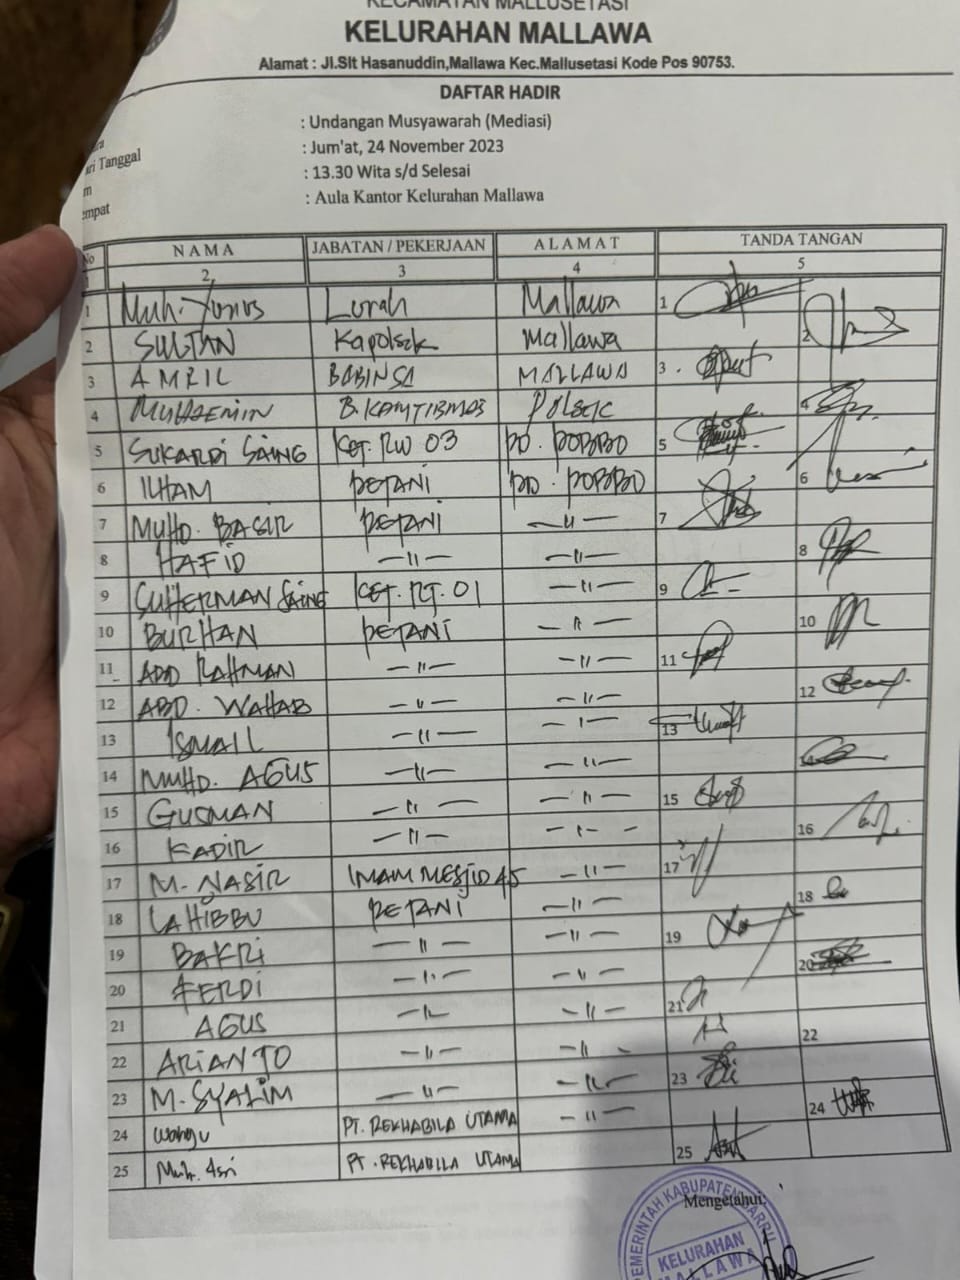 KECAMATAN MALLUSETASI
KELURAHAN MALLAWA
Alamat : Jl.Slt Hasanuddin,Mallawa Kec.Mallusetasi Kode Pos 90753.
DAFTAR HADIR
: Undangan Musyawarah (Mediasi)
Tanggal : Jum'at, 24 November 2023
: 13.30 Wita s/d Selesai
: Aula Kantor Kelurahan Mallawa
No NAMA JABATAN / PEKERJAAN ALAMAT TANDA TANGAN
1 2 3 4 5
1 Muh. Yunus Lurah Mallawa 1
2 SULTAN Kapolsek Mallawa 2
3 AMRIL BABINSA MALLAWA 3 .
4 MUHAEMIN B. KAMTIBMAS POLSEK 4
5 SUKARDI SAING KET. RW 03 DD. POPABO 5
6 ILHAM PETANI DD. POPABO 6
7 MUHD. BASIR PETANI —"— 7
8 HAFID —"— —"— 8
9 SUHERMAN SAING KET. RT. 01 —"— 9
10 BURHAN PETANI —"— 10
11 ABD RAHMAN —"— —"— 11
12 ABD. WAHAB —"— —"— 12
13 ISMAIL —"— —"— 13
14 MUHD. AGUS —"— —"— 14
15 GUSMAN —"— —"— 15
16 KADIR —"— —"— 16
17 M. NASIR IMAM MESJID 45 —"— 17
18 LAHIBBU PETANI —"— 18
19 BAKRI —"— —"— 19
20 FERDI —"— —"— 20
21 AGUS —"— —"— 21
22 ARIANTO —"— —"— 22
23 M. SYALIM —"— —"— 23
24 Wahyu PT. REKHABILA UTAMA —"— 24
25 Muh. Asri PT. REKHABILA UTAMA 25
Mengetahui:
PEMERINTAH KABUPATEN BARRU
KELURAHAN
MALLAWA